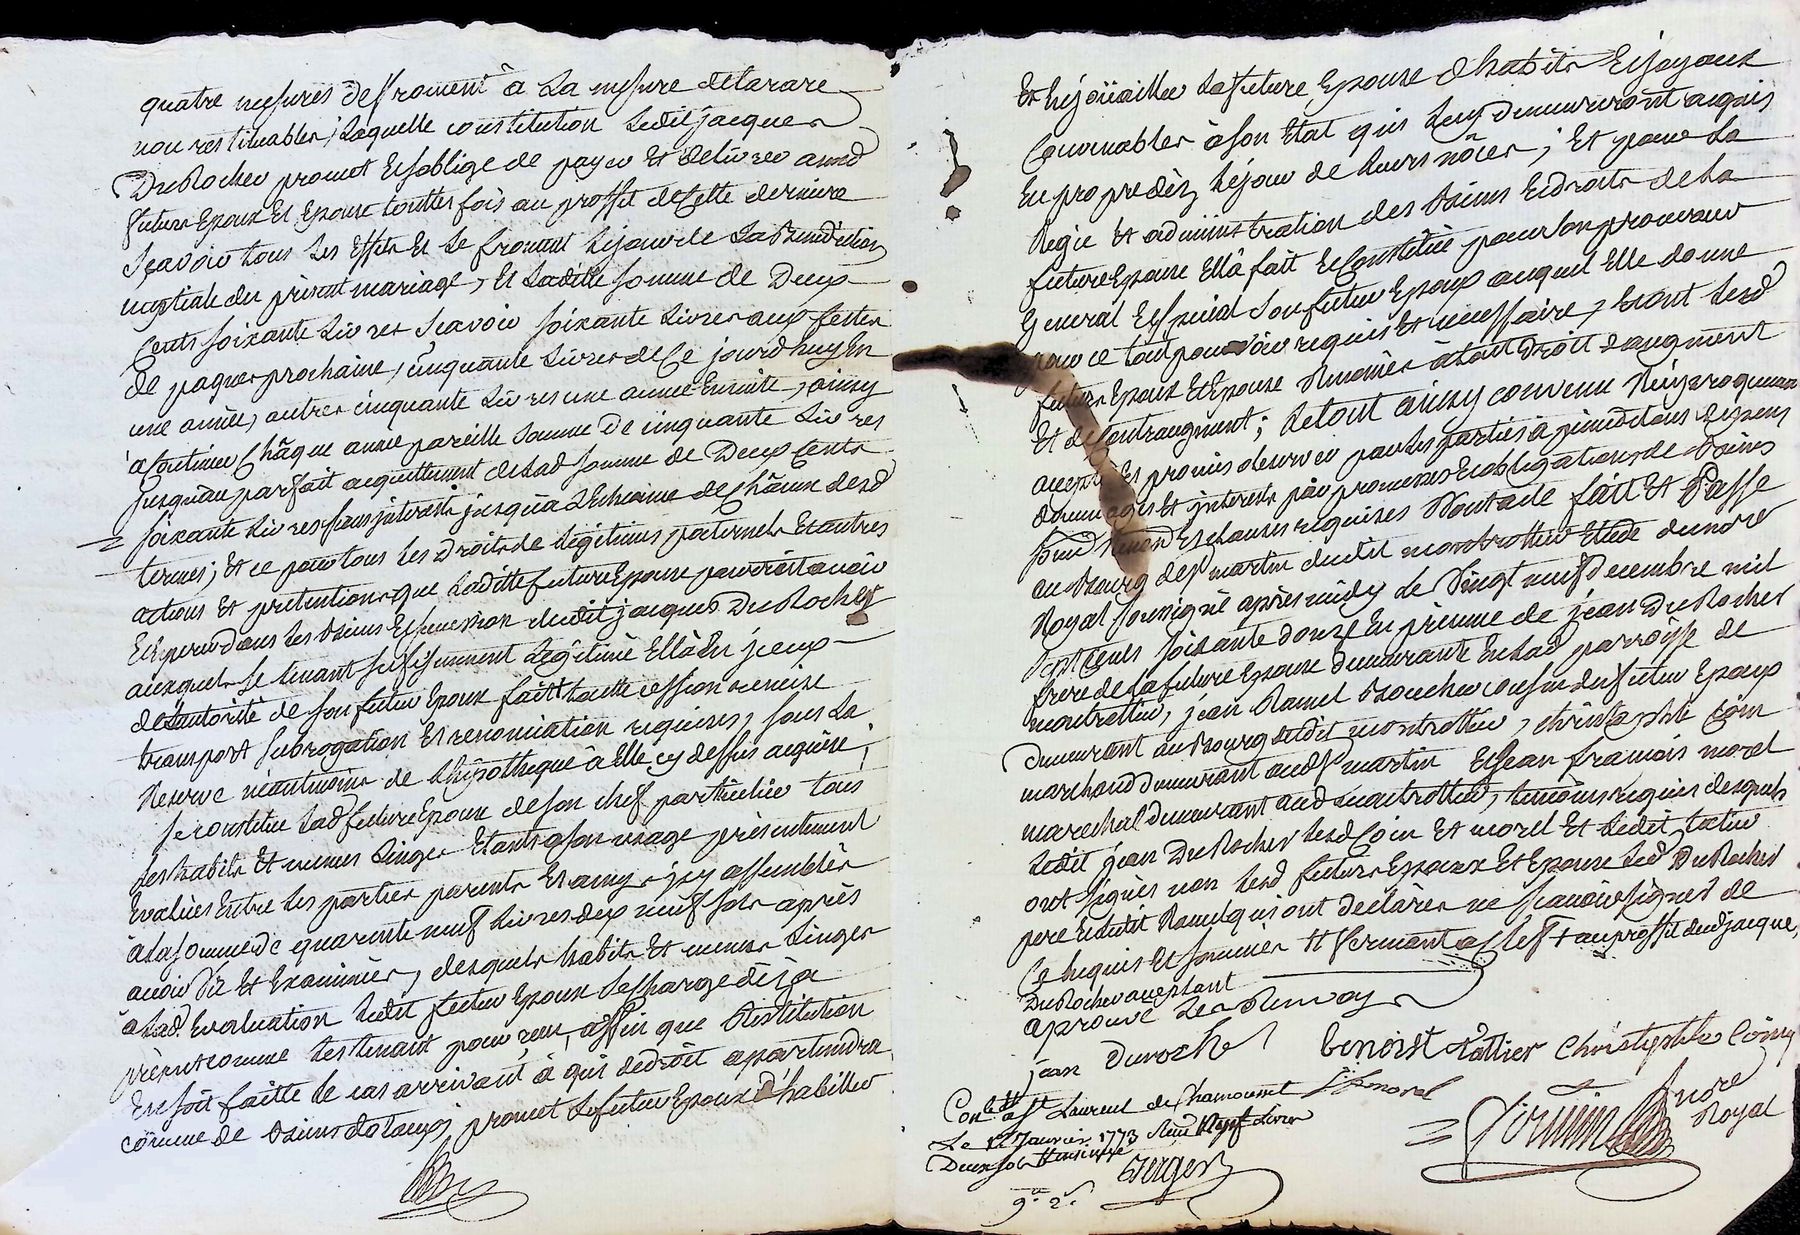 quatre mesures de froment à La mesure detarare
non restituables, Laquelle constitution Ledit jacques
DuRocher promet Et soblige de payer Et delivrer auxd
futurs Epoux Et Epouse touttes fois au proffit de Cette derniere
Sçavoir tous Les Effets Et Le froment Le jour de La Benediction
nuptiale du present mariage, Et Laditte somme de Deux
Cents soixante Livres Sçavoir soixante Livres aux festes
de paques prochaine, cinquante Livres de Ce jourdhuy En
une année, autres cinquante Livres une année Ensuite, ainsy
a Continuer Châque année pareille somme De cinquante Livres
jusquau parfait acquittement de Lad somme de Deux Cents
soixante Livres sans interests jusqu'a L'Echeance de Châcun desd
termes; Et ce pour tous Les Droits de Legitimes paternels Et autres
actions Et pretentions que Laditte future Epouse pourroit avoir
Et Esperer dans Les Biens Et succession dudit jacques DuRocher
auxquels Se tenant suffisamment Legitimée Ellâ En jceux
de Lautorité de son futur Epoux fait touttes cession remise
transport subrogation Et renonciation requises, sous La
Reserve néantmoins de L'hipotheque à Elle cy dessus acquise;
Se constitue Lad future Epouse de son chef particulier tous
ses habits Et menus Linges Etants a son usage présentement
Evalués Entre Les parties parents Et amys jcy assemblés
à La somme de quarente neuf Livres dix neuf sols après
avoir Vû Et Examinés, desquels habits Et menus Linges
a Lad. Evaluation Ledit futur Epoux Se charge dès a
présent comme Les tenant pour reçu, affin que Restitution
En soit faitte Le cas arrivant à qui de droit apartiendra
comme de Biens dotaux; promet Le futur Epoux D'habiller
Et Enjoüailler La future Epouse d'habits Et joyaux
Convenables à son Etat qui Luy demeureront acquis
En propre dès Le jour de Leurs nôces; Et pour La
Regie Et administration des Biens Et droits de La
future Epouse Ellâ fait Et Constitué pour son procureur
General Et special son futur Epoux auquel Elle donne
pour ce tout pouvoir requis Et necessaire, Et ont Lesd
futurs Epoux Et Epouse Renoncés à tout Droit daugment
Et de Contraugment; Le tout ainsy convenu Reciproquement
accepté Et promis observer par Les parties à peine de tous depens
dommages Et interests par promesses Et obligations de Biens
soumis Renon Et clauses requises Dont acte fait Et Passé
au Bourg de St martin dudit montrottier Etude du nore
Royal soussigné après midy Le Vingt neuf decembre mil
Sept Cents soixante douze En présence de jean DuRocher
frere de la future Epouse demeurante En Lad parroisse de
montrottier, jean Ramel Boucher cousin du futur Epoux
demeurant au Bourg dudit montrottier, christophle Coin
marchand demeurant aud St martin Et jean francois morel
marechal demeurant aud montrottier, temoins requis desquels
Ledit jean DuRocher Lesd Coin Et morel Et Ledit tatier
ont signés non Lesd futurs Epoux Et Epouse Led DuRocher
pere Et Ledit Ramel qui ont declarés ne Scavoir signer de
Ce Requis Et sommés + au proffit dud jacque,
DuRocher acceptant
aprouvé Les Renvoys
jean duroche benoist tattier Christophle Coing
J. f. morel
Conlé a St Laurent de Chamousset
Le 12 Janvier 1773 Reçu Neuf Livres
Deux sols
berger
nore Royal